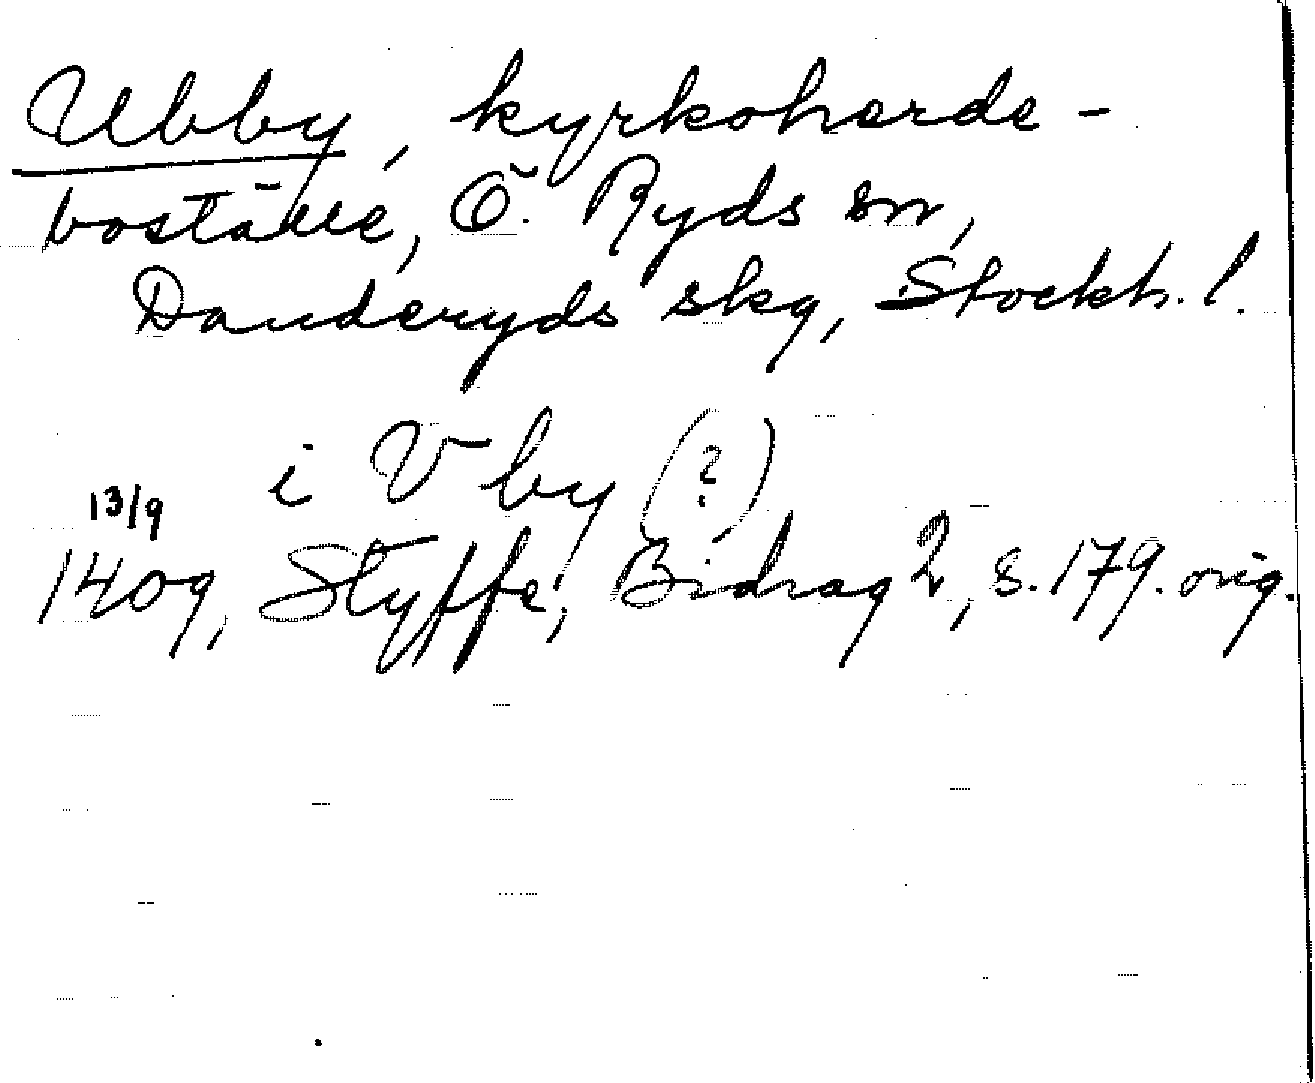 Ubby, kyrkoherde-
boställe, Ö. Ryds sn,
Danderyds skg, Stockh. l.
i V by (?)
13/9
1409, Styffe, Bidrag 2, s. 179. orig.